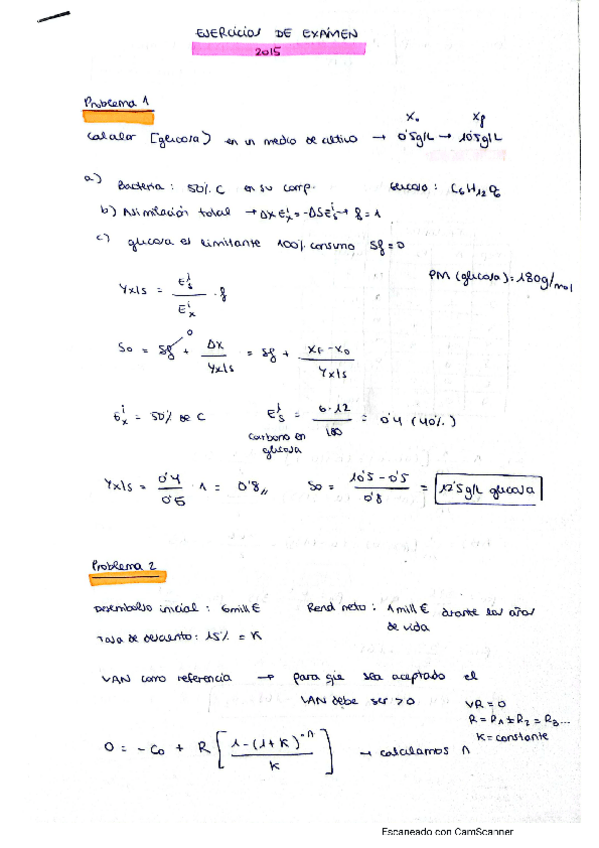 EJERCICIOS DE EXAMEN
2015
Problema 1
Calcular [glucosa] en un medio de cultivo → X₀ 0'5g/L → Xf 10'5g/L
a) Bacteria: 50% C en su comp. Glucosa: C6H12O6
b) Asimilación total → ΔX Eⁱx = -ΔS Eⁱs → f = 1
c) glucosa es limitante 100% consumo Sf = 0
PM (glucosa) = 180g/mol
Yx/s = Eⁱs / Eⁱx · f
S0 = Sf⁰ + Δx / Yx/s = Sf + XF - X0 / Yx/s
Eⁱx = 50% de C Eⁱs = 6·12 / 180 = 0'4 (40%)
carbono en glucosa
Yx/s = 0'4 / 0'5 · 1 = 0'8,, S0 = 10'5 - 0'5 / 0'8 = 12'5 g/L glucosa
Problema 2
Desembolso inicial: 6mill € Rend neto: 1 mill € durante los años
de vida
Tasa de descuento: 15% = K
VAN como referencia → para que sea aceptado el
VAN debe ser >0
VR = 0
R = R1 = R2 = R3...
K = constante
0 = -C0 + R [1-(1+K)⁻ⁿ / K] → calculamos n
Escaneado con CamScanner